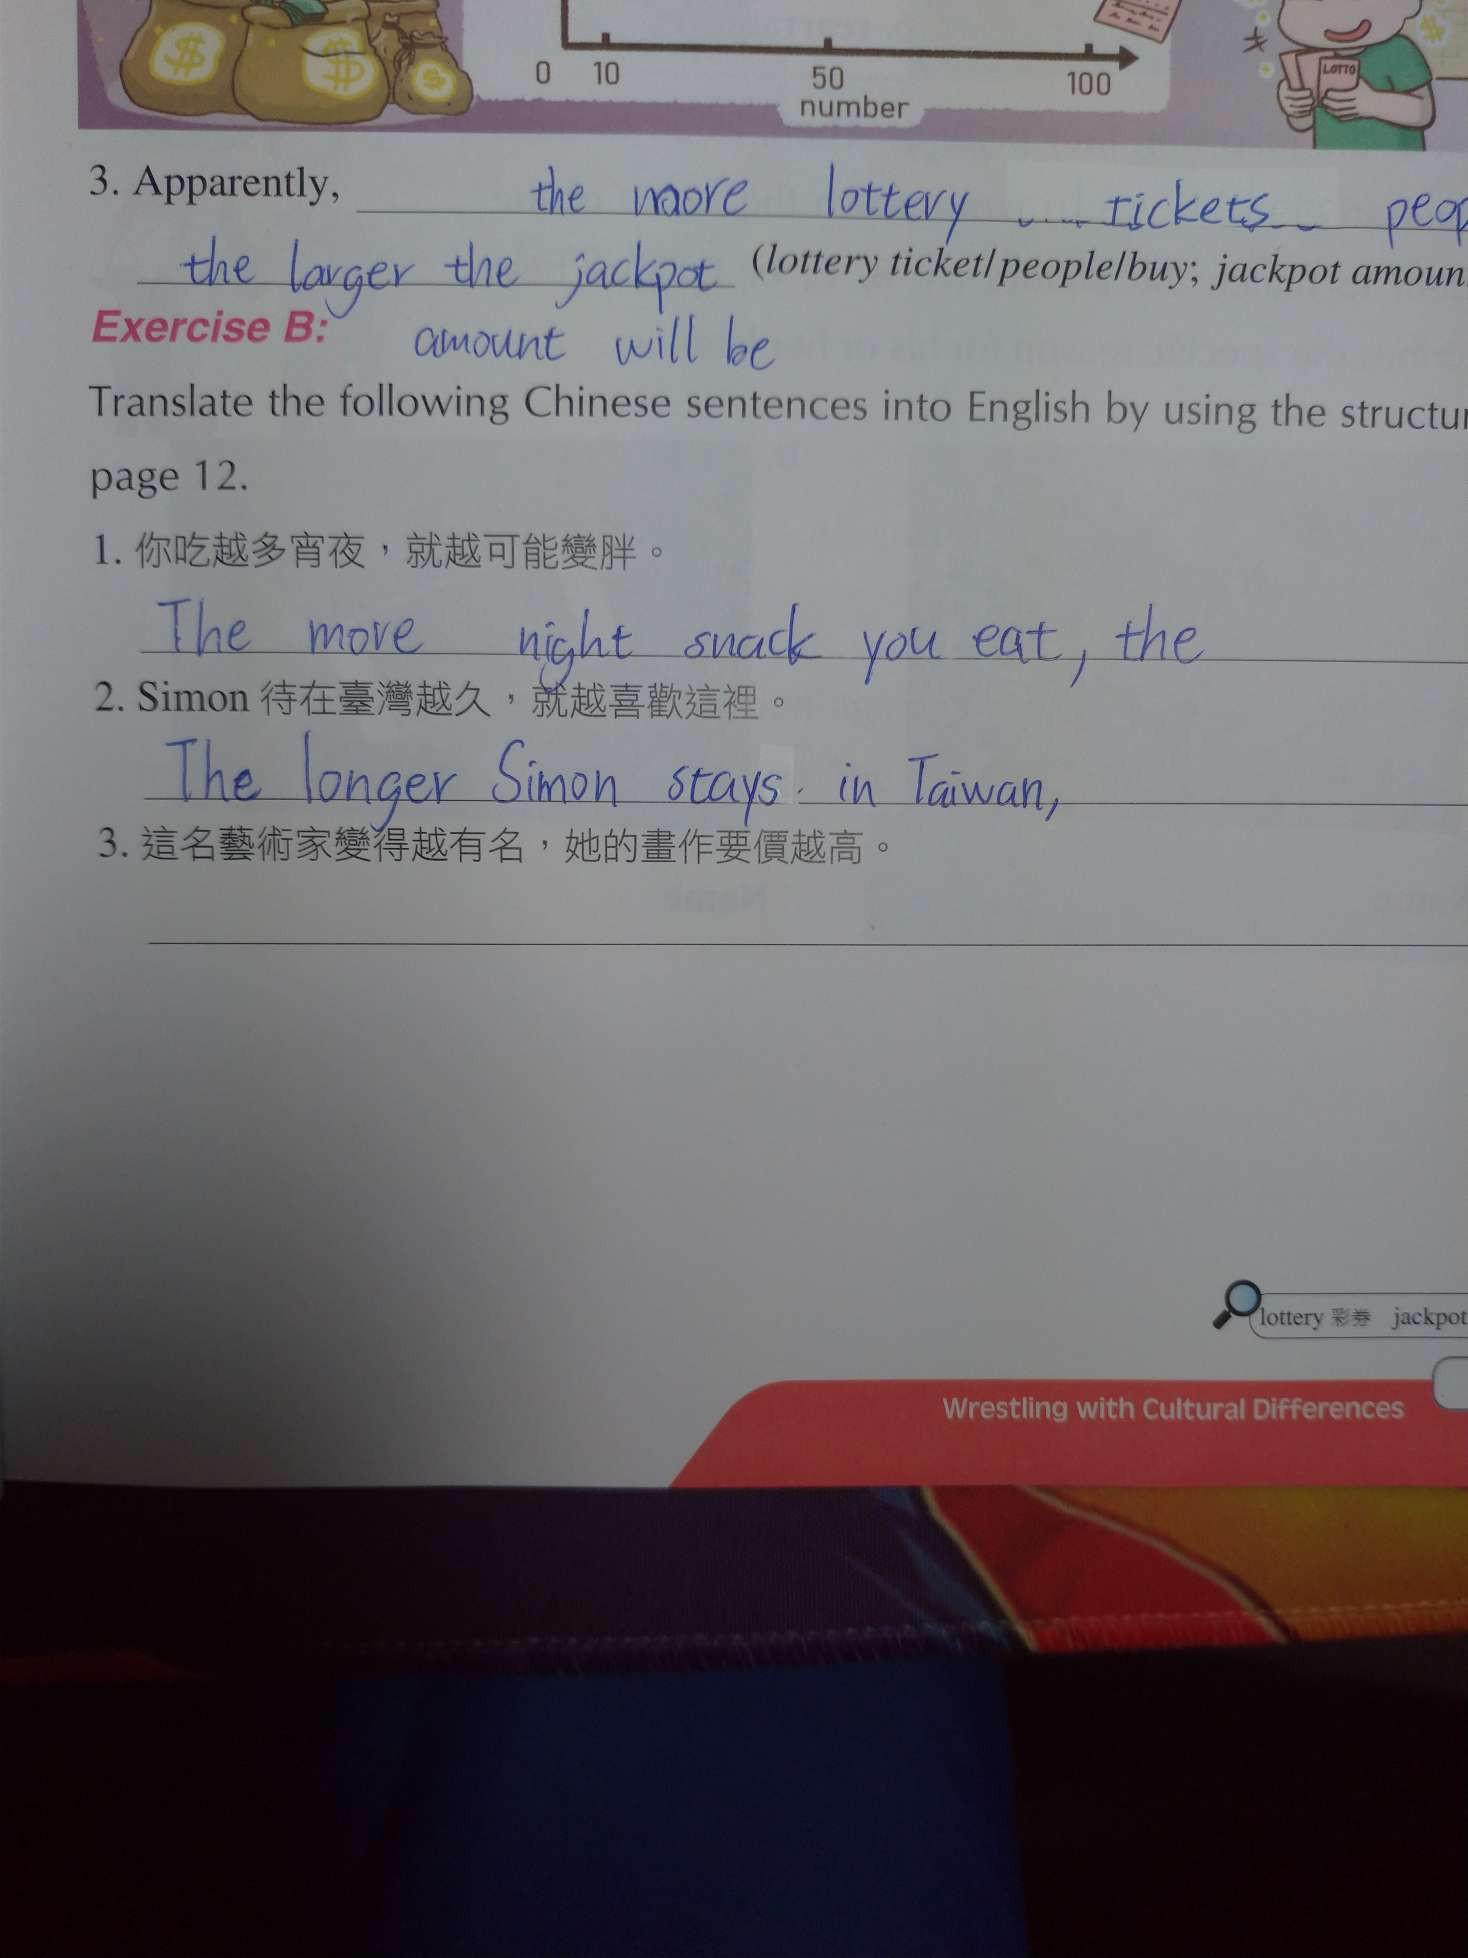 $
$
$
LOTTO
0 10 50 100
number
3. Apparently, the more lottery tickets
the larger the jackpot (lottery ticket/people/buy; jackpot
Exercise B: amount will be
Translate the following Chinese sentences into English by using the
page 12.
1. 你吃越多宵夜，就越可能變胖。
The more night snack you eat, the
2. Simon 待在臺灣越久，就越喜歡這裡。
The longer Simon stays in Taiwan,
3. 這名藝術家變得越有名，她的畫作要價越高。
lottery 彩券 jackpot
Wrestling with Cultural Differences